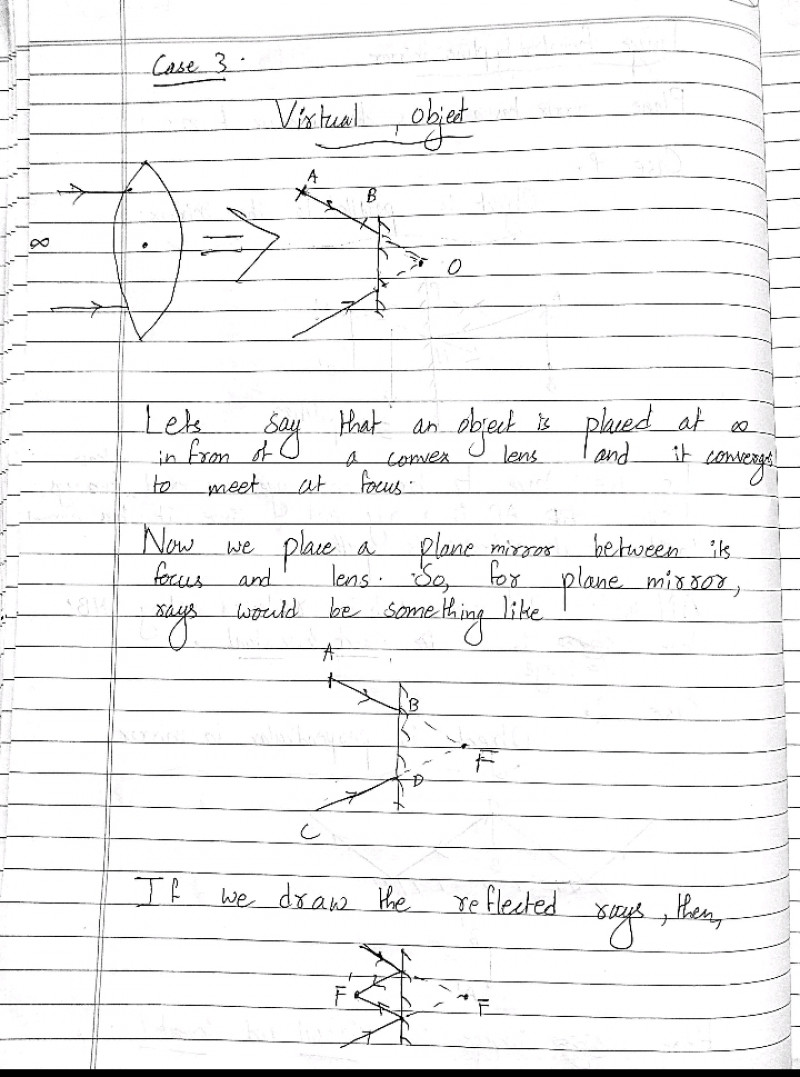 Case 3.
Virtual object
∞
A
B
O
Lets say that an object is placed at ∞
in fron of a convex lens and it converges
to meet at focus.
Now we place a plane mirror between its
focus and lens. So, for plane mirror,
rays would be something like
A
B
F
D
C
If we draw the reflected rays, then,
F'
F